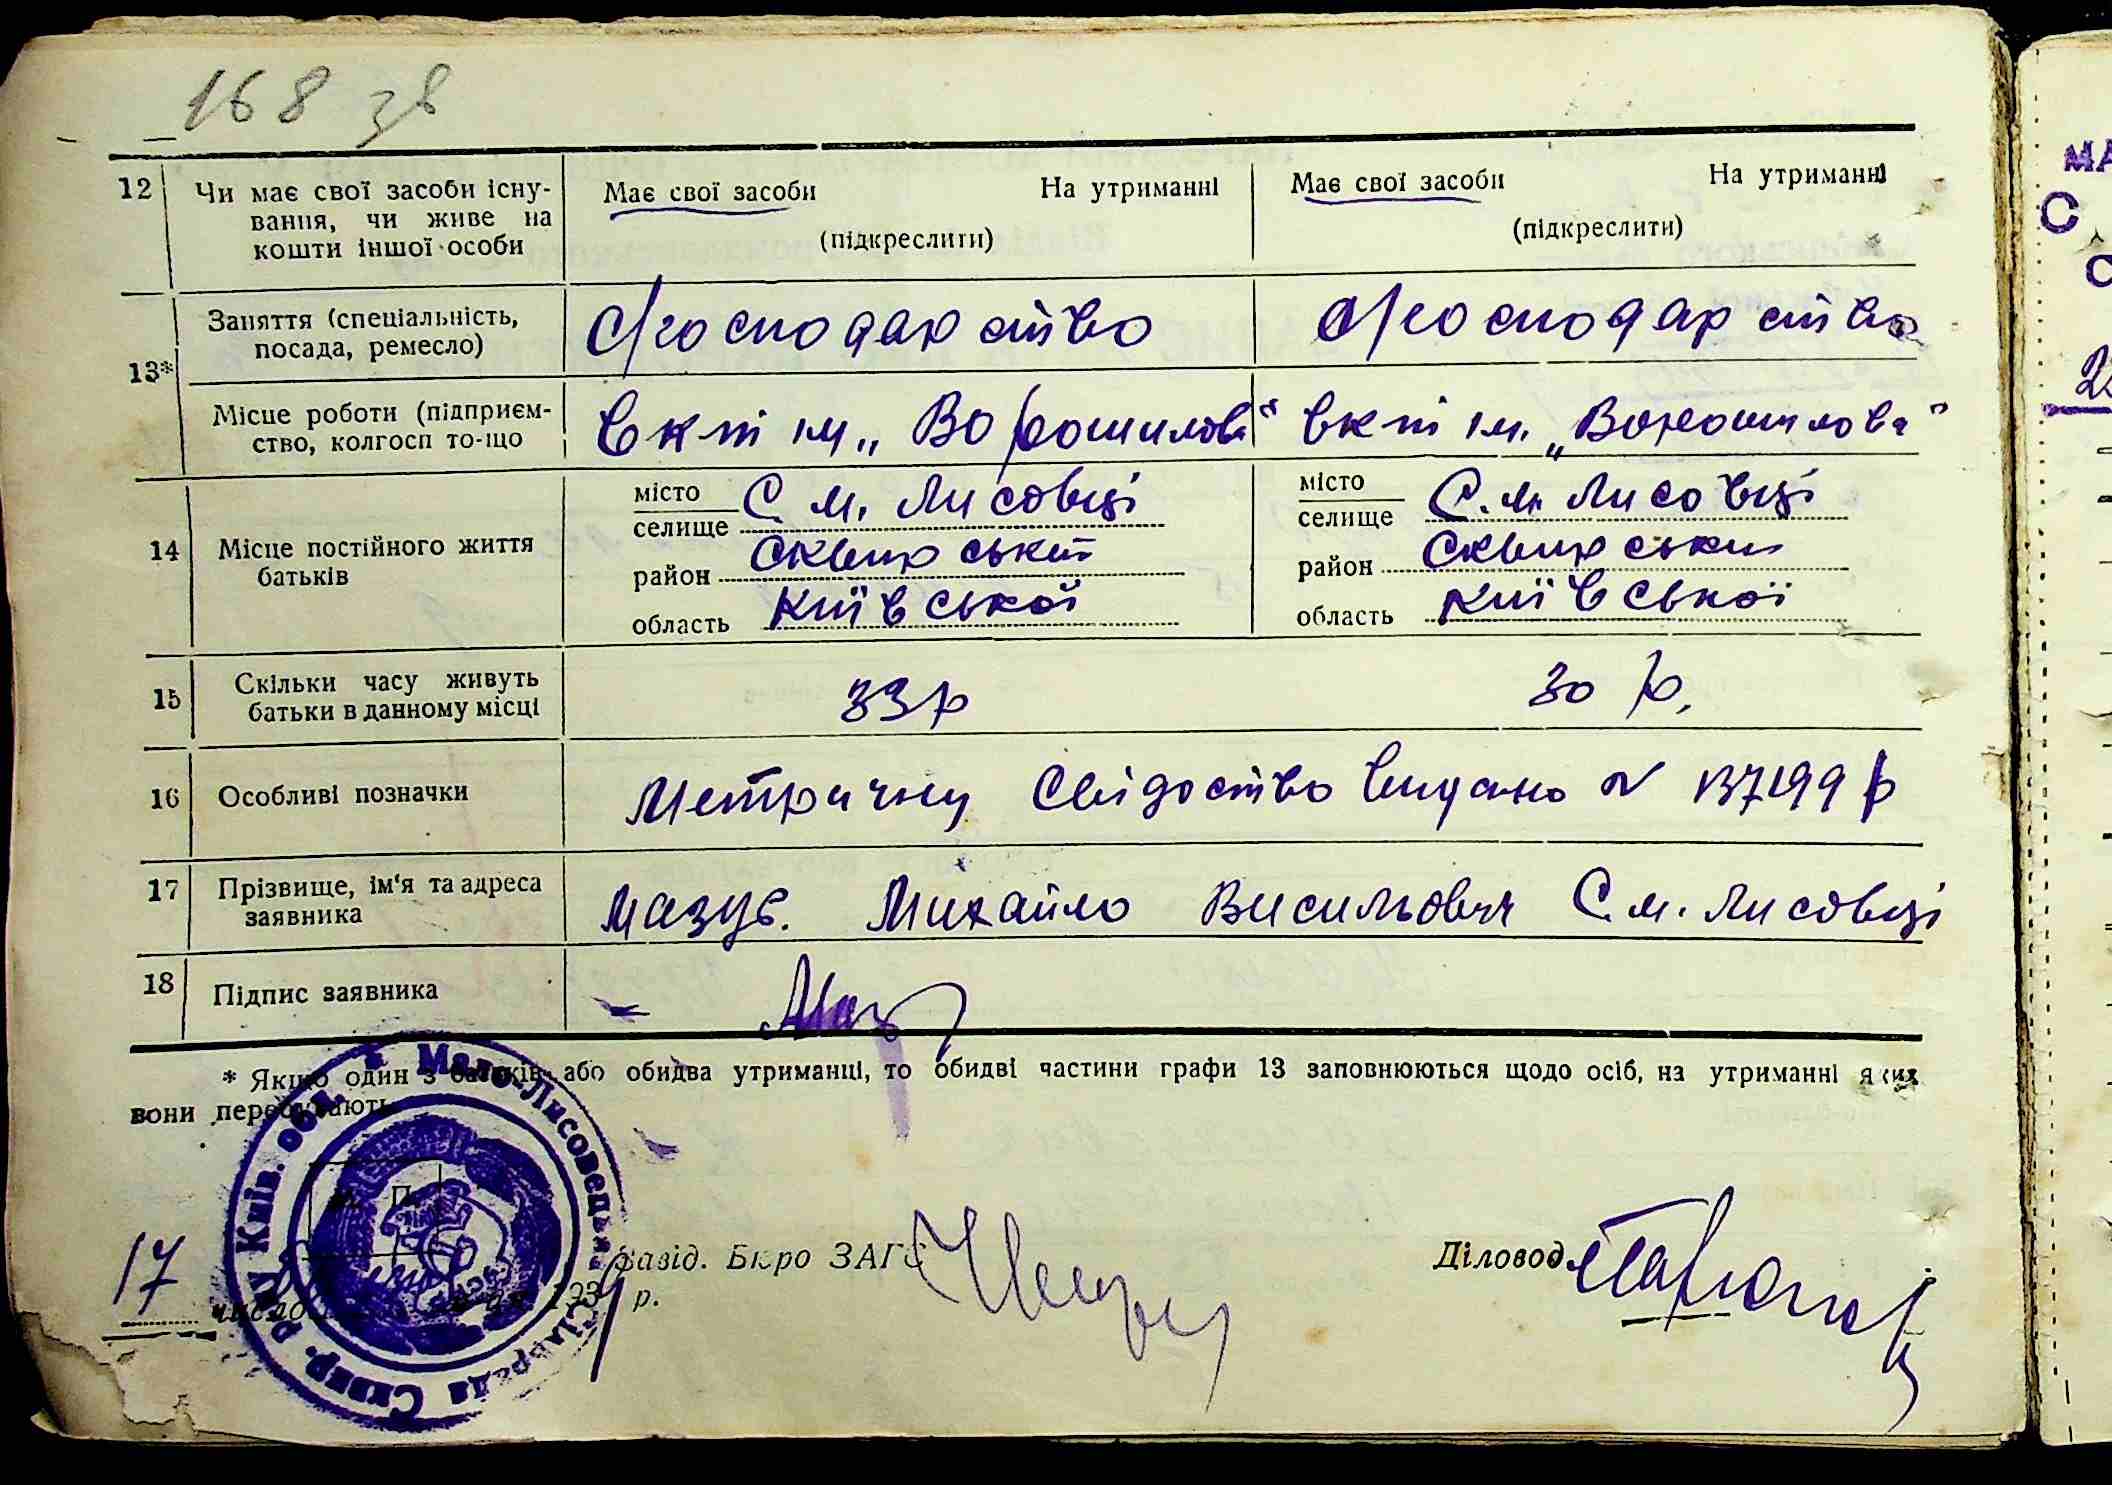 168 зв
12 Чи має свої засоби існу-
вання, чи живе на
кошти іншої особи
Має свої засоби На утриманні
(підкреслити)
Має свої засоби На утриманні
(підкреслити)
13* Заняття (спеціальність,
посада, ремесло)
с/господарство
с/господарство
Місце роботи (підприєм-
ство, колгосп то-що
в кт ім. „Ворошилова“
в кт ім. „Ворошилова“
14 Місце постійного життя
батьків
місто
селище С. м. Лисовці
район Сквирський
область Київської
місто
селище С. м. Лисовці
район Сквирський
область Київської
15 Скільки часу живуть
батьки в данному місці
33 р
30 р.
16 Особливі позначки
Метричну Свідоство видано № 137199 р
17 Прізвище, ім‘я та адреса
заявника
Мазур. Михайло Висильович С. м. Лисовці
18 Підпис заявника
Маз
* Якщо один з батьків або обидва утриманці, то обидві частини графи 13 заповнюються щодо осіб, на утриманні яких
вони перебувають
Мало-Лисовецька сільрада Сквир. р-ну Київ. обл.
М. П.
17
число 193 р.
Завід. Бюро ЗАГС
Діловод
МА
С
С